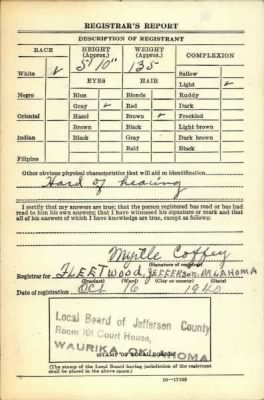 REGISTRAR'S REPORT
DESCRIPTION OF REGISTRANT
RACE HEIGHT (Approx.) WEIGHT (Approx.) COMPLEXION
5' 10" 135
White ✓ Sallow
EYES HAIR Light ✓
Negro Blue Blonde Ruddy
Gray ✓ Red Dark
Oriental Hazel Brown ✓ Freckled
Brown Black Light brown
Indian Black Gray Dark brown
Bald Black
Filipino
Other obvious physical characteristics that will aid in identification
Hard of hearing
I certify that my answers are true; that the person registered has read or has had read to him his own answers; that I have witnessed his signature or mark and that all of his answers of which I have knowledge are true, except as follows:
Myrtle Coffey
(Signature of registrar)
Registrar for FLEETWOOD, JEFFERSON, OKLAHOMA
(Precinct) (Ward) (City or county)
Date of registration Oct 16 1940
Local Board of Jefferson County
Room 101 Court House,
WAURIKA, OKLAHOMA
(STAMP OF LOCAL BOARD)
(The stamp of the Local Board having jurisdiction of the registrant shall be placed in the above space.)